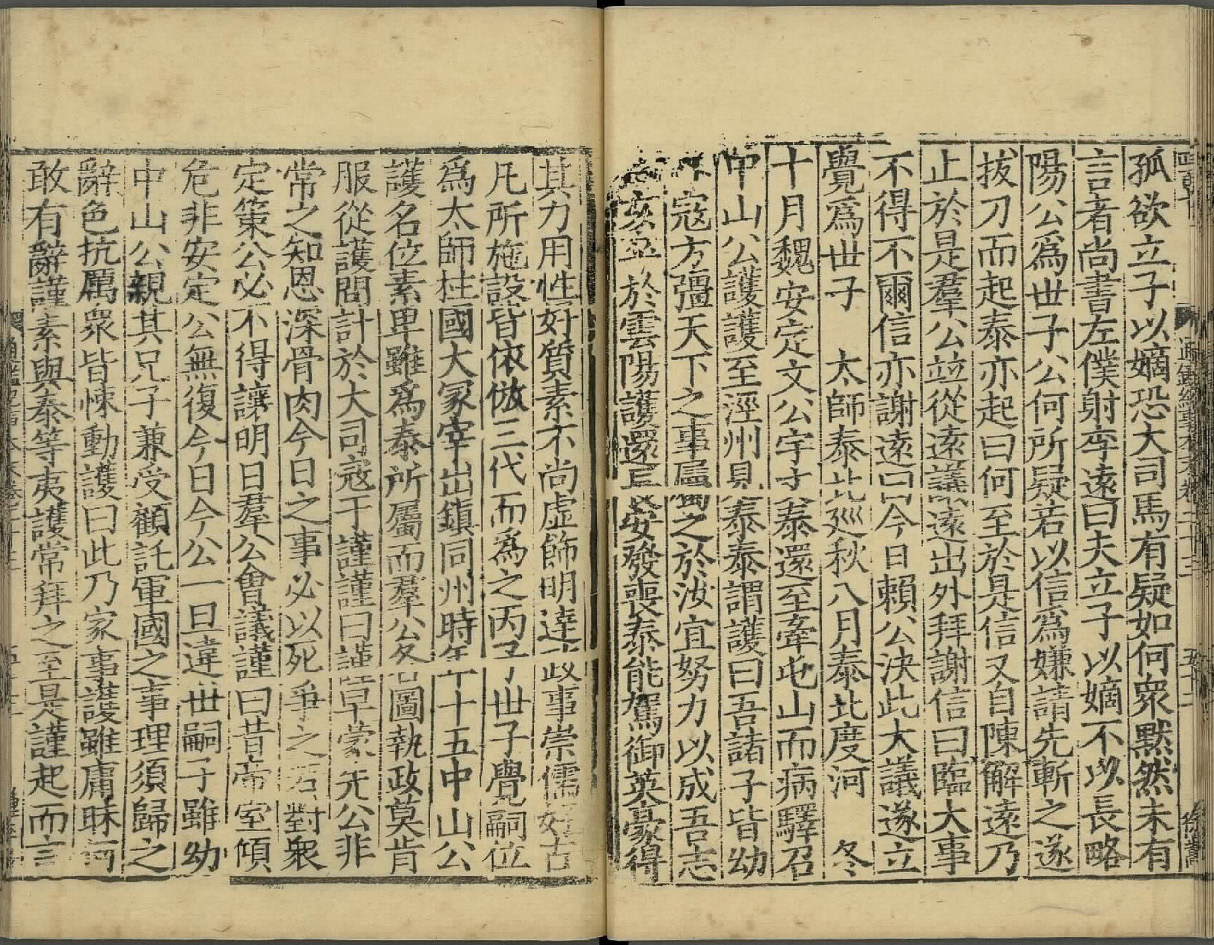 孤欲立子以嫡恐大司馬有疑如何衆默然未有
言者尚書左僕射李遠曰夫立子以嫡不以長略
陽公爲世子公何所疑若以信爲嫌請先斬之遂
拔刀而起泰亦起曰何至於是信又自陳解遠乃
止於是羣公並從遠議遠出外拜謝信曰臨大事
不得不爾信亦謝遠曰今日賴公決此大議遂立
覺爲世子　太師泰北巡秋八月泰北度河　冬
十月魏安定文公宇文泰還至牽屯山而病驛召
中山公護護至涇州見泰泰謂護曰吾諸子皆幼
外寇方彊天下之事屬之於汝宜努力以成吾志
於雲陽護還長安發喪泰能駕御英豪得
其力用性好質素不尚虛飾明達政事崇儒好古
凡所施設皆依倣三代而爲之丙子世子覺嗣位
爲太師柱國大冢宰出鎮同州時年十五中山公
護名位素卑雖爲泰所屬而羣公各圖執政莫肯
服從護問計於大司寇于謹謹曰謹早蒙先公非
常之知恩深骨肉今日之事必以死爭之若對衆
定策公必不得讓明日羣公會議謹曰昔帝室傾
危非安定公無復今日今公一旦違世嗣子雖幼
中山公親其兄子兼受顧託軍國之事理須歸之
辭色抗厲衆皆悚動護曰此乃家事護雖庸昧何
敢有辭謹素與泰等夷護常拜之至是謹起而言